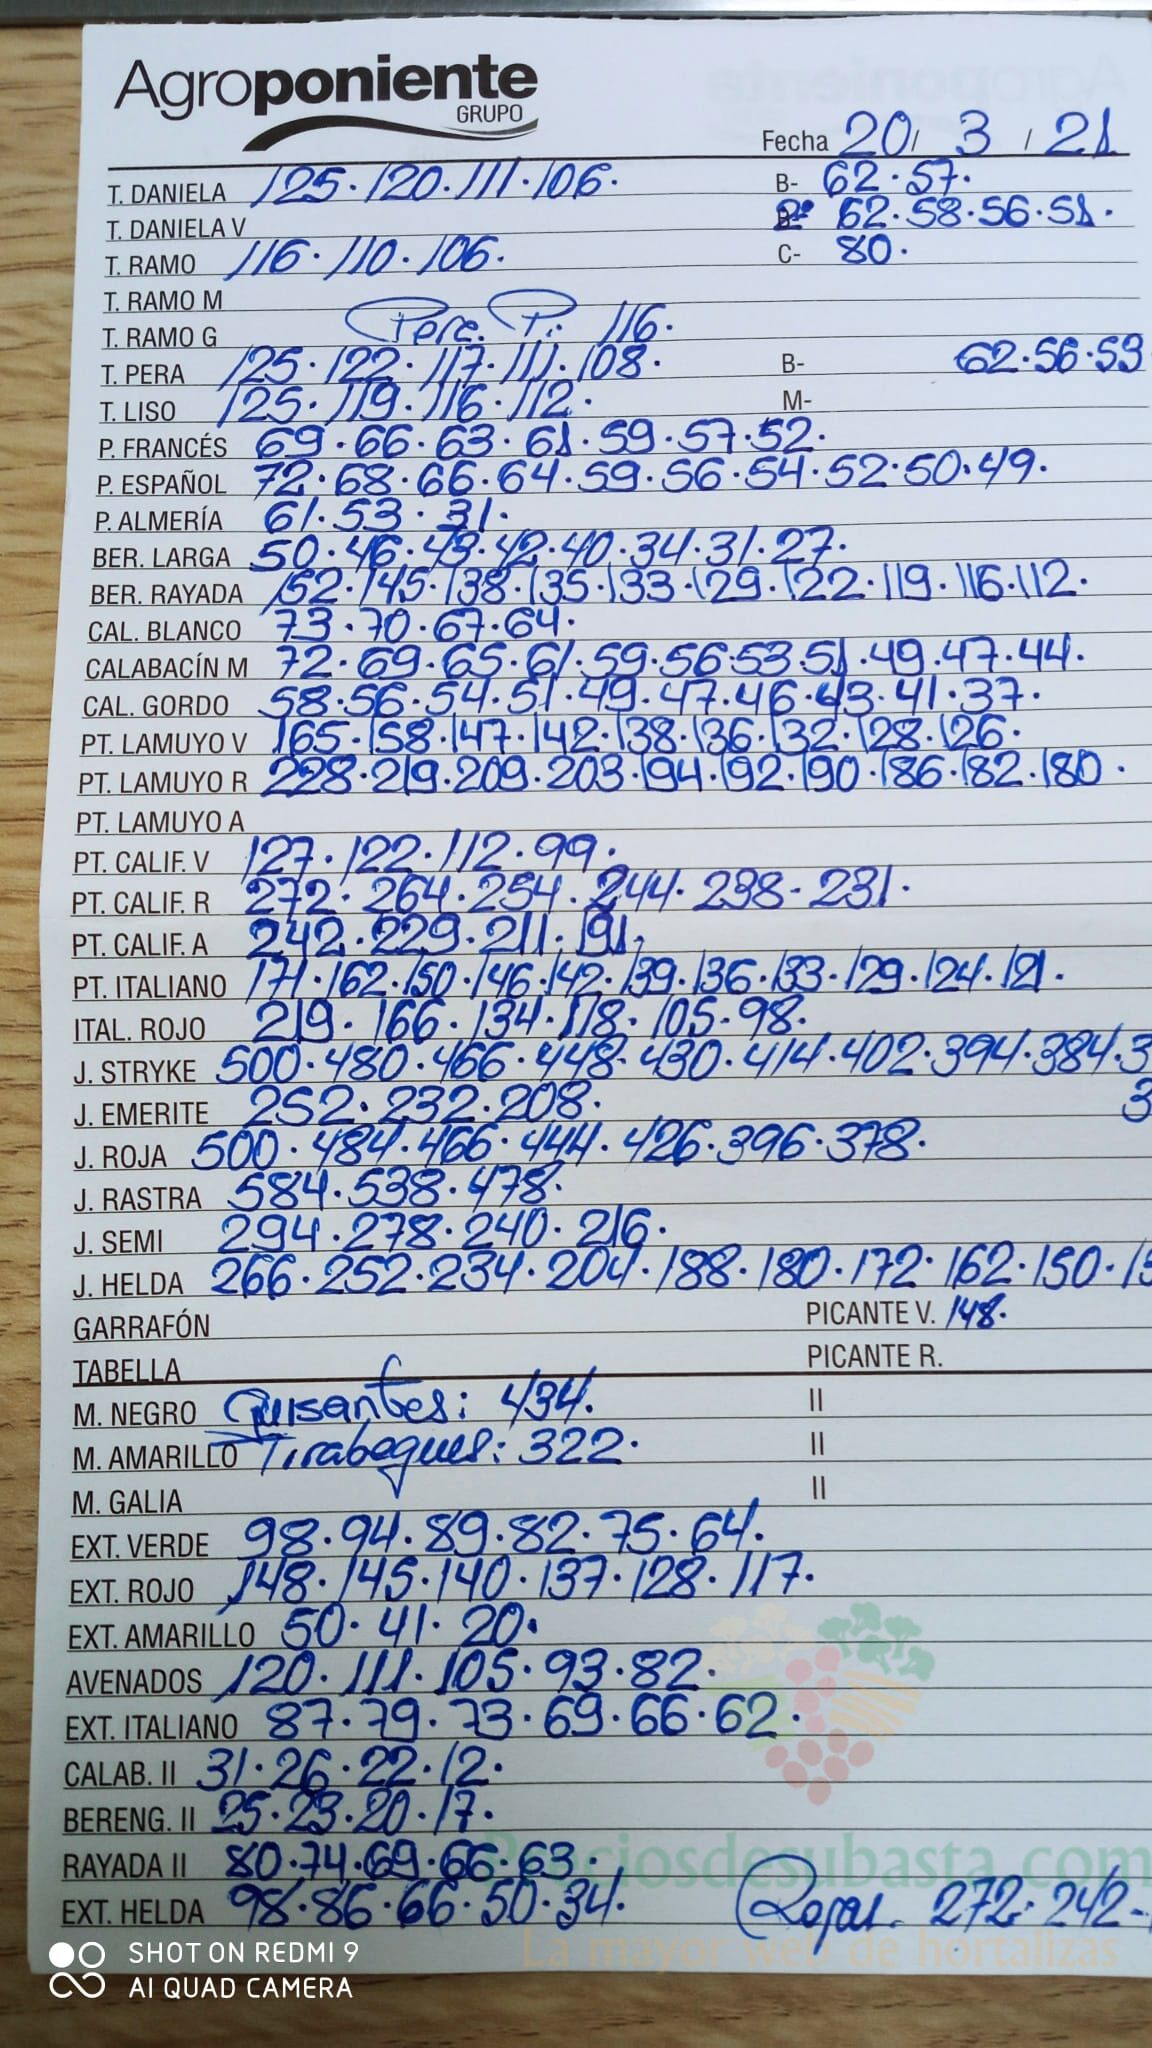 Agroponiente
GRUPO
Fecha 20/ 3 / 21
T. DANIELA 125·120·111·106· B- 62·57·
T. DANIELA V 2ª 62·58·56·51·
T. RAMO 116·110·106· C- 80·
T. RAMO M
T. RAMO G Pera P. 116·
T. PERA 125·122·117·111·108· B- 62·56·53
T. LISO 125·119·116·112· M-
P. FRANCÉS 69·66·63·61·59·57·52·
P. ESPAÑOL 72·68·66·64·59·56·54·52·50·49·
P. ALMERÍA 61·53·31·
BER. LARGA 50·46·43·42·40·34·31·27·
BER. RAYADA 152·145·138·135·133·129·122·119·116·112·
CAL. BLANCO 73·70·67·64·
CALABACÍN M 72·69·65·61·59·56·53·51·49·47·44·
CAL. GORDO 58·56·54·51·49·47·46·43·41·37·
PT. LAMUYO V 165·158·147·142·138·136·132·128·126·
PT. LAMUYO R 228·219·209·203·194·192·190·186·182·180·
PT. LAMUYO A
PT. CALIF. V 127·122·112·99·
PT. CALIF. R 272·264·254·244·238-231·
PT. CALIF. A 242·229·211·191·
PT. ITALIANO 171·162·150·146·142·139·136·133·129·124·121·
ITAL. ROJO 219·166·134·118·105·98·
J. STRYKE 500·480·466·448·430·414·402·394·384·3
J. EMERITE 252·232·208· 3
J. ROJA 500·484·466·444·426·396·378·
J. RASTRA 584·538·478·
J. SEMI 294·278·240·216·
J. HELDA 266·252·234·204·188·180·172·162·150·15
GARRAFÓN PICANTE V. 148·
TABELLA PICANTE R.
M. NEGRO Guisantes: 434· II
M. AMARILLO Tirabeques: 322· II
M. GALIA II
EXT. VERDE 98·94·89·82·75·64·
EXT. ROJO 148·145·140·137·128·117·
EXT. AMARILLO 50·41·20·
AVENADOS 120·111·105·93·82·
EXT. ITALIANO 87·79·73·69·66·62·
CALAB. II 31·26·22·12·
BERENG. II 25·23·20·17·
RAYADA II 80·74·69·66·63·
Preciosdesubasta.com
EXT. HELDA 98·86·66·50·34· Rojas. 272·242-
La mayor web de hortalizas
SHOT ON REDMI 9
AI QUAD CAMERA